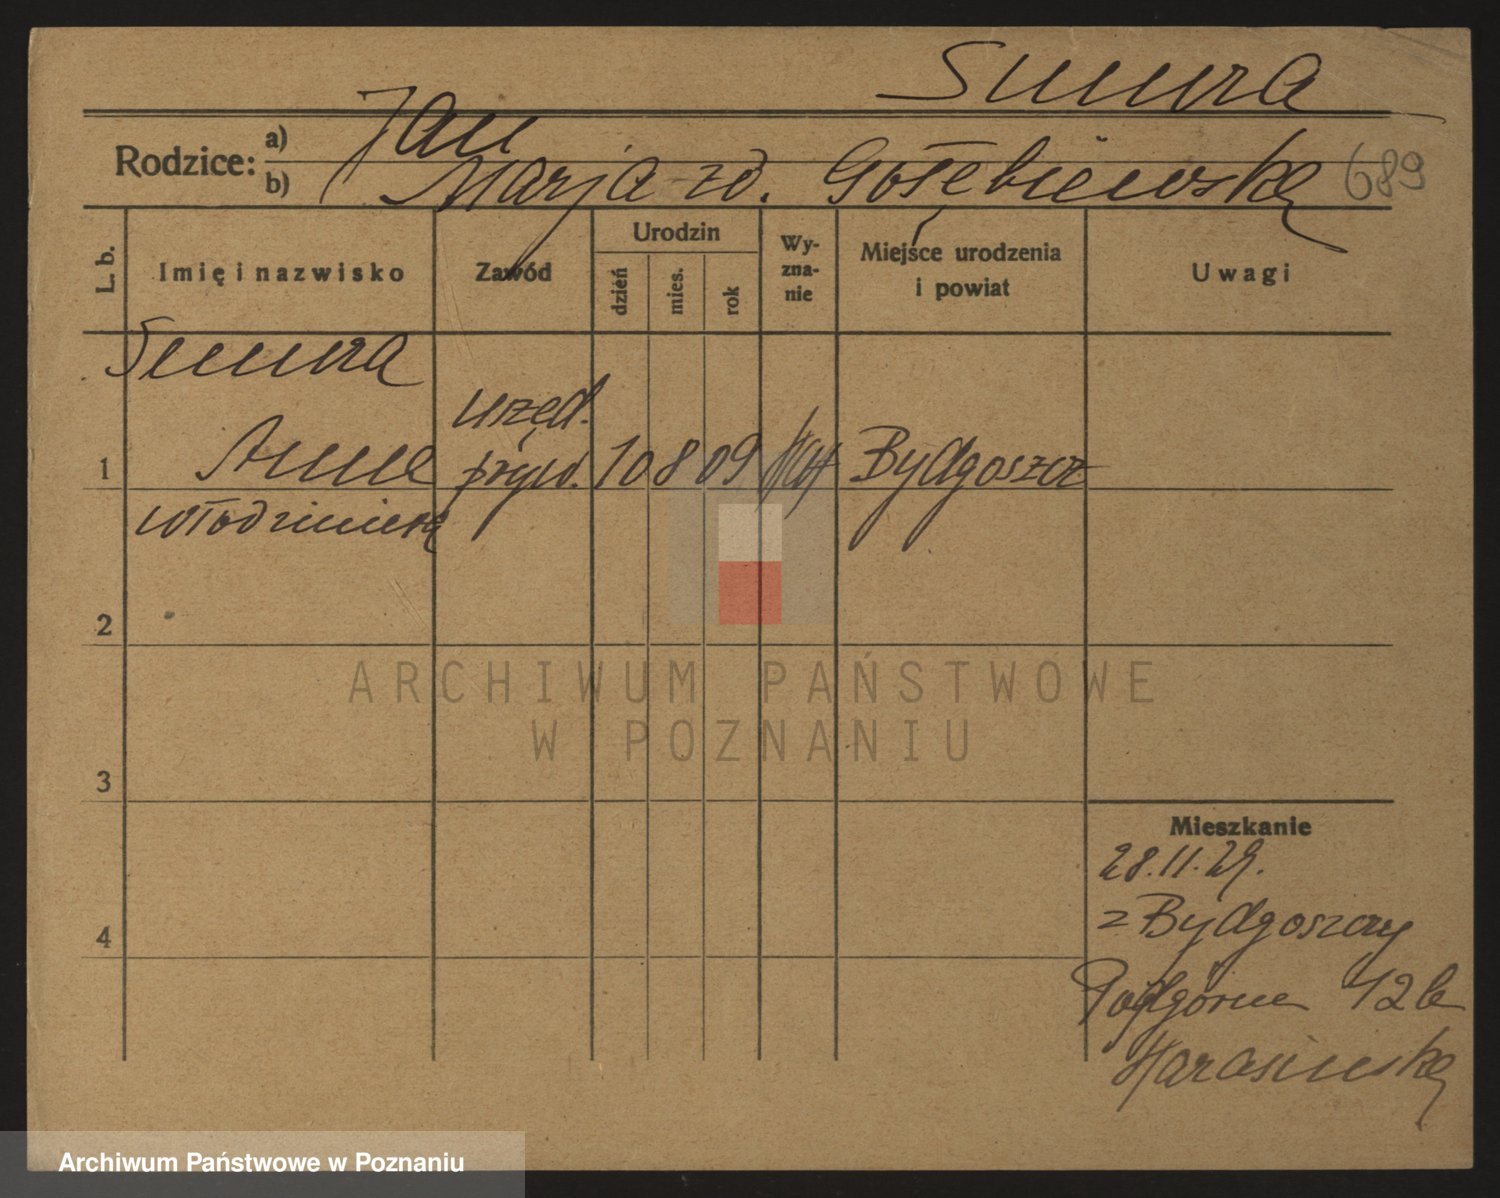 Smura
Rodzice:
a) Jan
b) Marja zd. Gołębiewska
689
L. b.
Imię i nazwisko
Zawód
Urodzin
dzień
mies.
rok
Wy-
zna-
nie
Miejsce urodzenia
i powiat
Uwagi
Smura
urzęd.
1 Anna pryw. 10 8 09 Bydgoszcz
Włodzimiera
2
3
4
ARCHIWUM PAŃSTWOWE
W POZNANIU
Mieszkanie
28.11.29.
z Bydgoszczy
Podgórna 12b
Archiwum Państwowe w Poznaniu